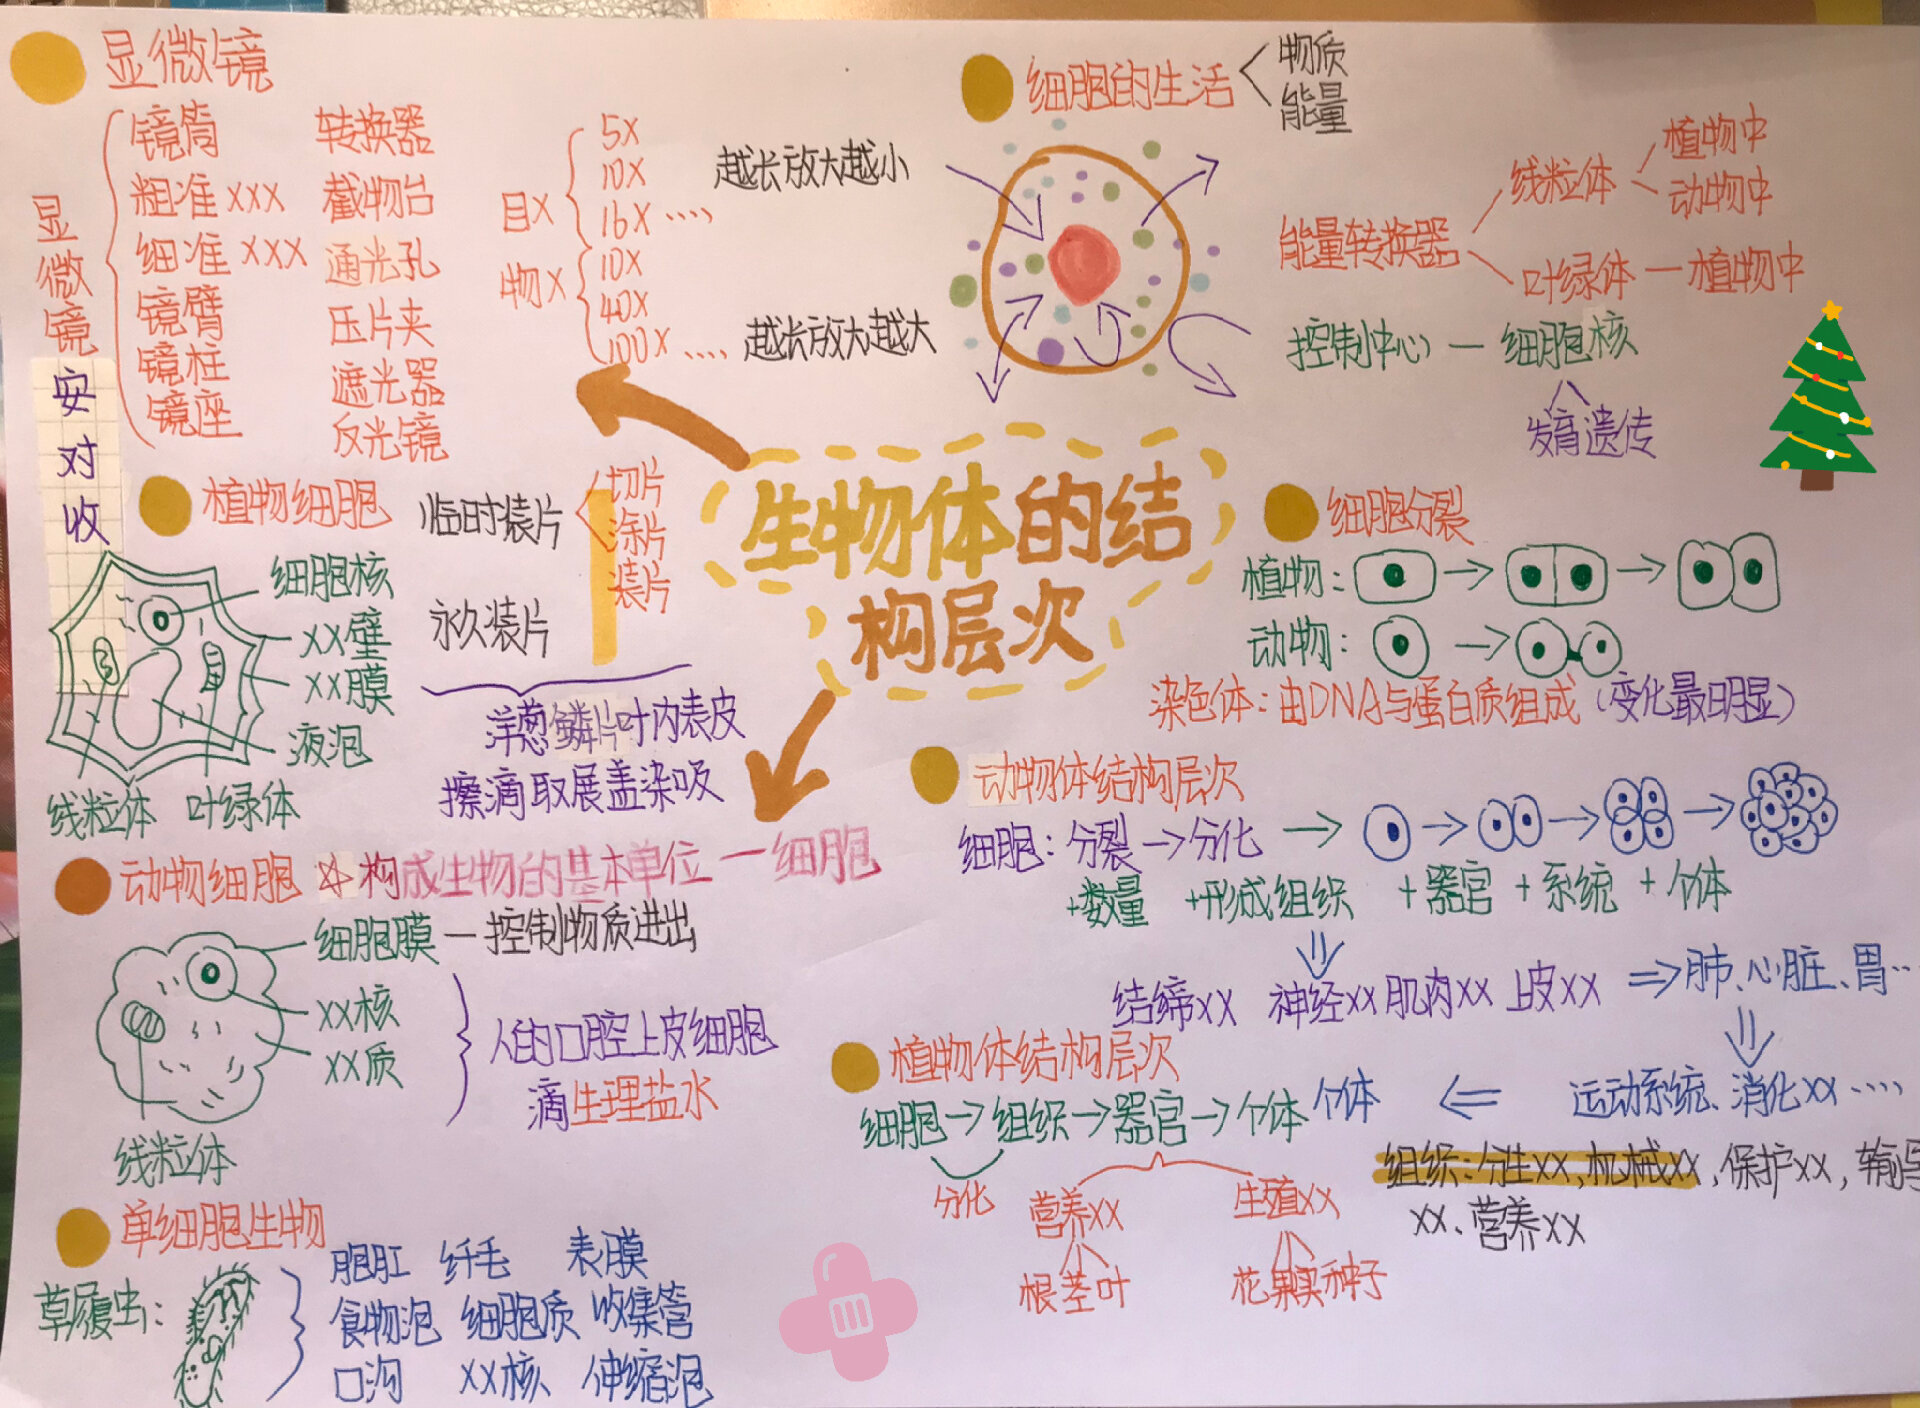 显微镜
显微镜
安对收
镜筒 转换器
粗准xxx 截物台
细准xxx 通光孔
镜臂 压片夹
镜柱 遮光器
镜座 反光镜
目X
5X
10X
16X ····
越长放大越小
物X
10X
40X
100X ····
越长放大越大
细胞的生活
物质
能量
能量转换器
线粒体
植物中
动物中
叶绿体 — 植物中
控制中心 — 细胞核
发育遗传
生物体的结
构层次
植物细胞
细胞核
xx壁
xx膜
液泡
线粒体 叶绿体
临时装片
切片
涂片
装片
永久装片
洋葱鳞片叶内表皮
擦滴取展盖染吸
细胞分裂
植物:
动物:
染色体:由DNA与蛋白质组成(变化最明显)
动物细胞 ☆构成生物的基本单位 — 细胞
细胞膜 — 控制物质进出
xx核
xx质
线粒体
人的口腔上皮细胞
滴生理盐水
动物体结构层次
细胞:分裂→分化→
+数量 +形成组织 +器官 +系统 +个体
结缔xx 神经xx 肌肉xx 上皮xx ⇒肺、心脏、胃···
运动系统、消化xx····
个体
植物体结构层次
细胞→组织→器官→个体
分化
营养xx
生殖xx
根茎叶
花果实种子
组织:分生xx,机械xx,保护xx,输导
xx、营养xx
单细胞生物
草履虫:
胞肛 纤毛 表膜
食物泡 细胞质 收集管
口沟 xx核 伸缩泡